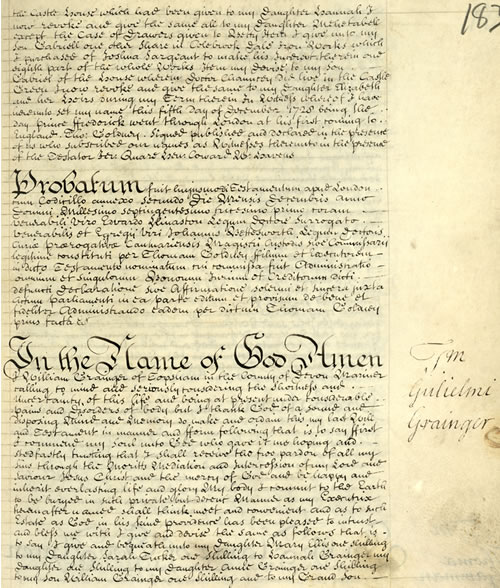 the Castle house which had been given to my Daughter Hannah I
now revoke and give the same all to my Daughter Mehetabell
except the Case of Drawers given to Betty Item I give unto my
son Gabriell one other share in Colebrook Dale Iron Works which
I purchased of Joshua Sargeant to make his Interest therein one
eighth part of the whole Works Item my Devise to my son
Gabriel of the house wherein Doctor Chauncey did live in the Castle
Green I now revoke and give the same to my Daughter Elizabeth
and her heirs during my Term therein In Witness whereof I have
hereunto set my name this fifth day of December 1728 being the
day prince Frederick went through London at his first coming to
England Tho: Goldney Signed published and declared in the presence
of us who subscribed our names as Witnesses thereunto in the presence
of the Testator
Probatum fuit hujusmodi Testamentum apud London
cum Codicillo annexo secundo Die Mensis Decembris Anno
Domini Millesimo Septingentesimo tricesimo primo coram
venerabili Viro Edvardo Kinaston Legum Doctore Surrogato
venerabilis et Egregii Viri Johannis Bettesworth Legum Doctoris
Curiæ prærogativæ Cantuariensis Magistri Custodis sive Commissarii
legitime constituti per Thomam Goldney filium et Executorem
in dicto Testamento nominatum cui commissa fuit Administratio
omnium et singulorum Bonorum Jurium et Creditorum dicti
defuncti declaratione sive Affirmatione solemni et sincera juxta
actum parliamenti in ea parte editum et provisum de bene et
fideliter Administrando eadem per dictum Thomam Goldney
prius facta
In the Name of God Amen
I William Grainger of Topsham in the County of Devon Mariner
calling to mind and seriously considering the shortness and
Uncertainty of this life and being at present under considerable
pains and disorders of body but I thank God of a sound and
disposing Mind and Memory do make and ordain this my last Will
and Testament in manner and form following that is to say ffirst
I commend my soul into God who gave it me hoping and
stedfastly trusting that I shall receive the free pardon of all my
sins through the Merits Mediation and Intercession of my Lord and
Saviour Jesus Christ and the mercy of God and be happy and
inherit everlasting life and glory My body I commit to the Earth
to be buryed in such private but decent Manner as my Executrix
hereafter named shall think meet and convenient and as to such
Estate as God in his kind providence has been pleased to intrust
and bless me with I give and devise the same as follows that is
to say I give and bequeath unto my Daughter Mary Ellis one shilling
to my Daughter Sarah Tuker one shilling to Hannah Grainger my
Daughter one shilling to my Daughter Anne Grainger one shilling
to my son William Grainger one shilling and to my Grand son
187
Tm
Gulielmi
Grainger